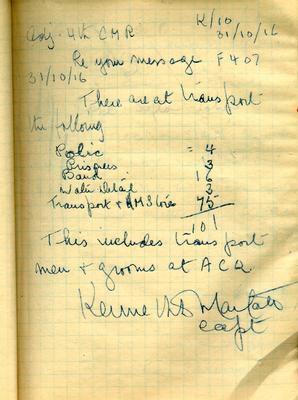 K/10
Adj. 4th CMR 31/10/16
Re your message F 407
31/10/16
There are at transport
the following
Police = 4
Prisoners 3
Band 16
Water detail 3
Transport + QM Stores 75
101
This includes transport
men + grooms at ACQ
Kenneth
Capt